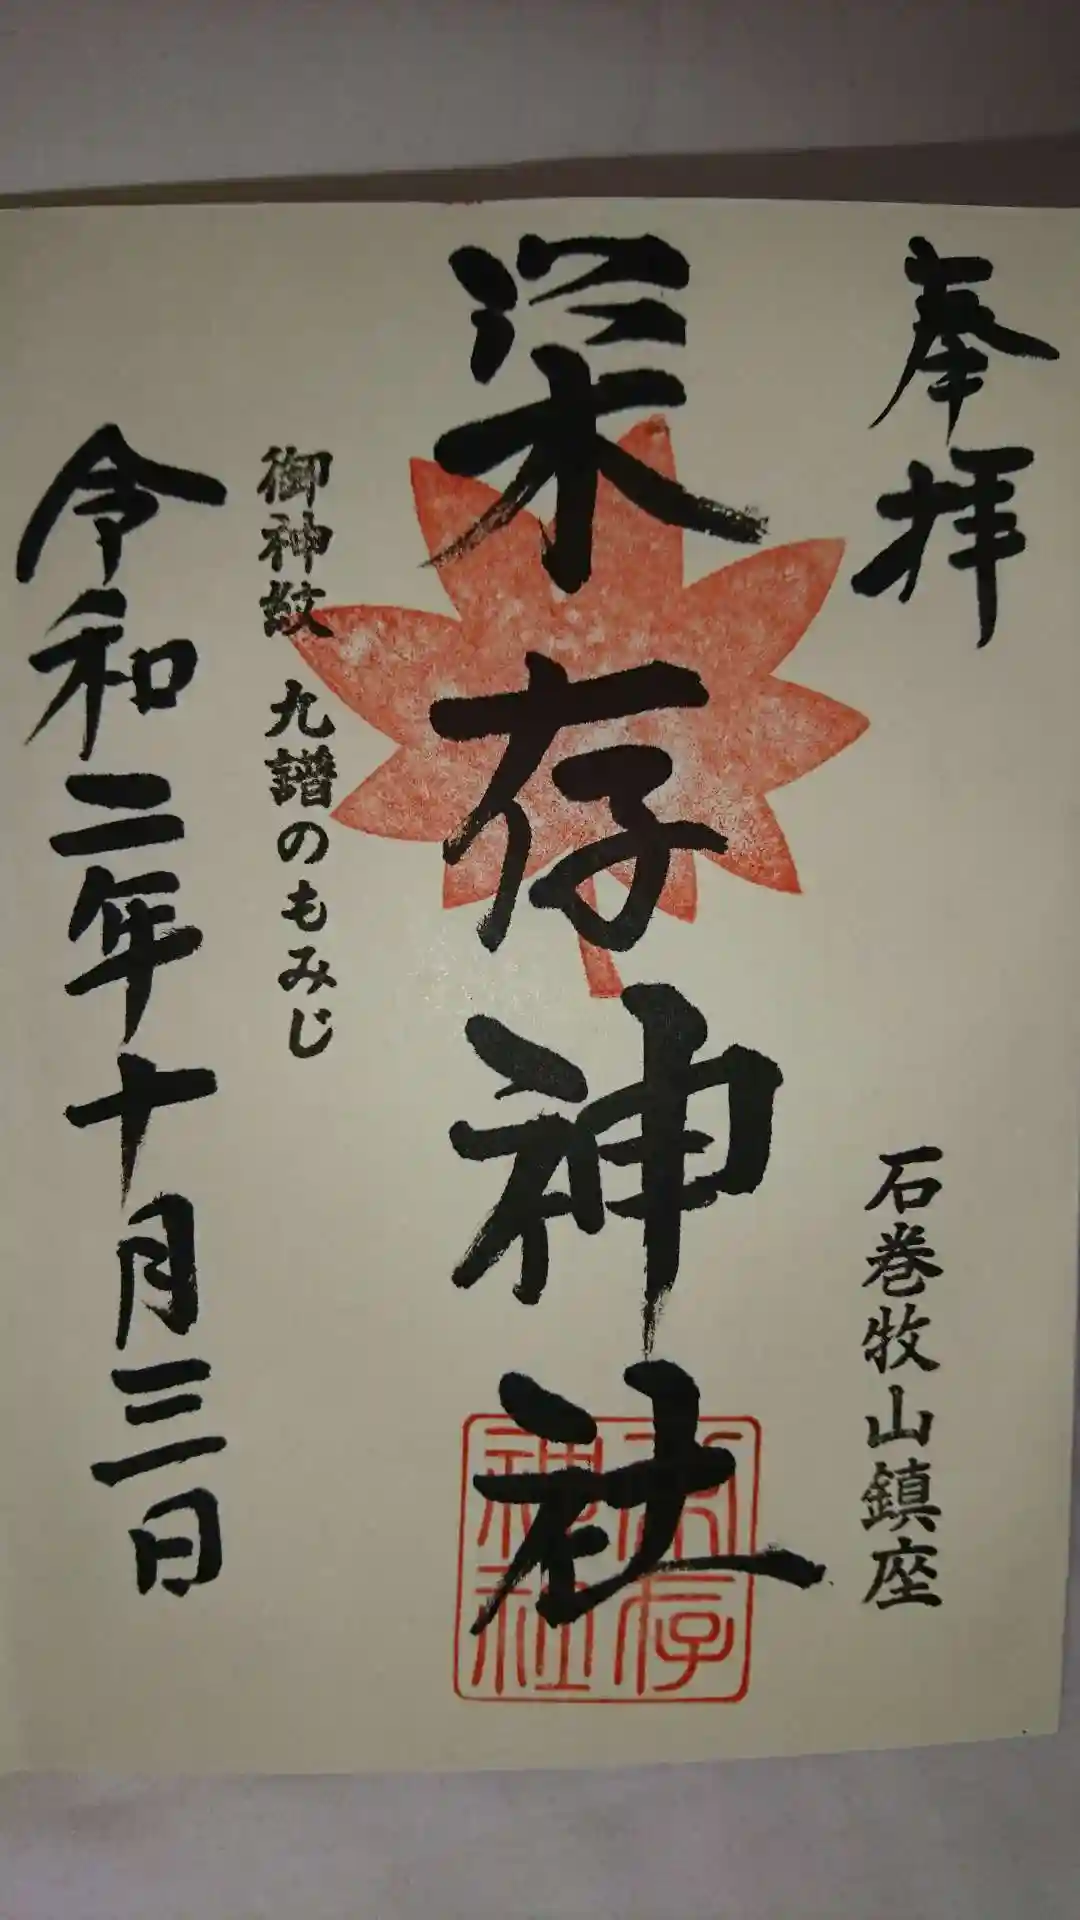 奉拝
石巻牧山鎮座
栄存神社
栄存神社
御神紋 九譜のもみじ
令和二年十月三日